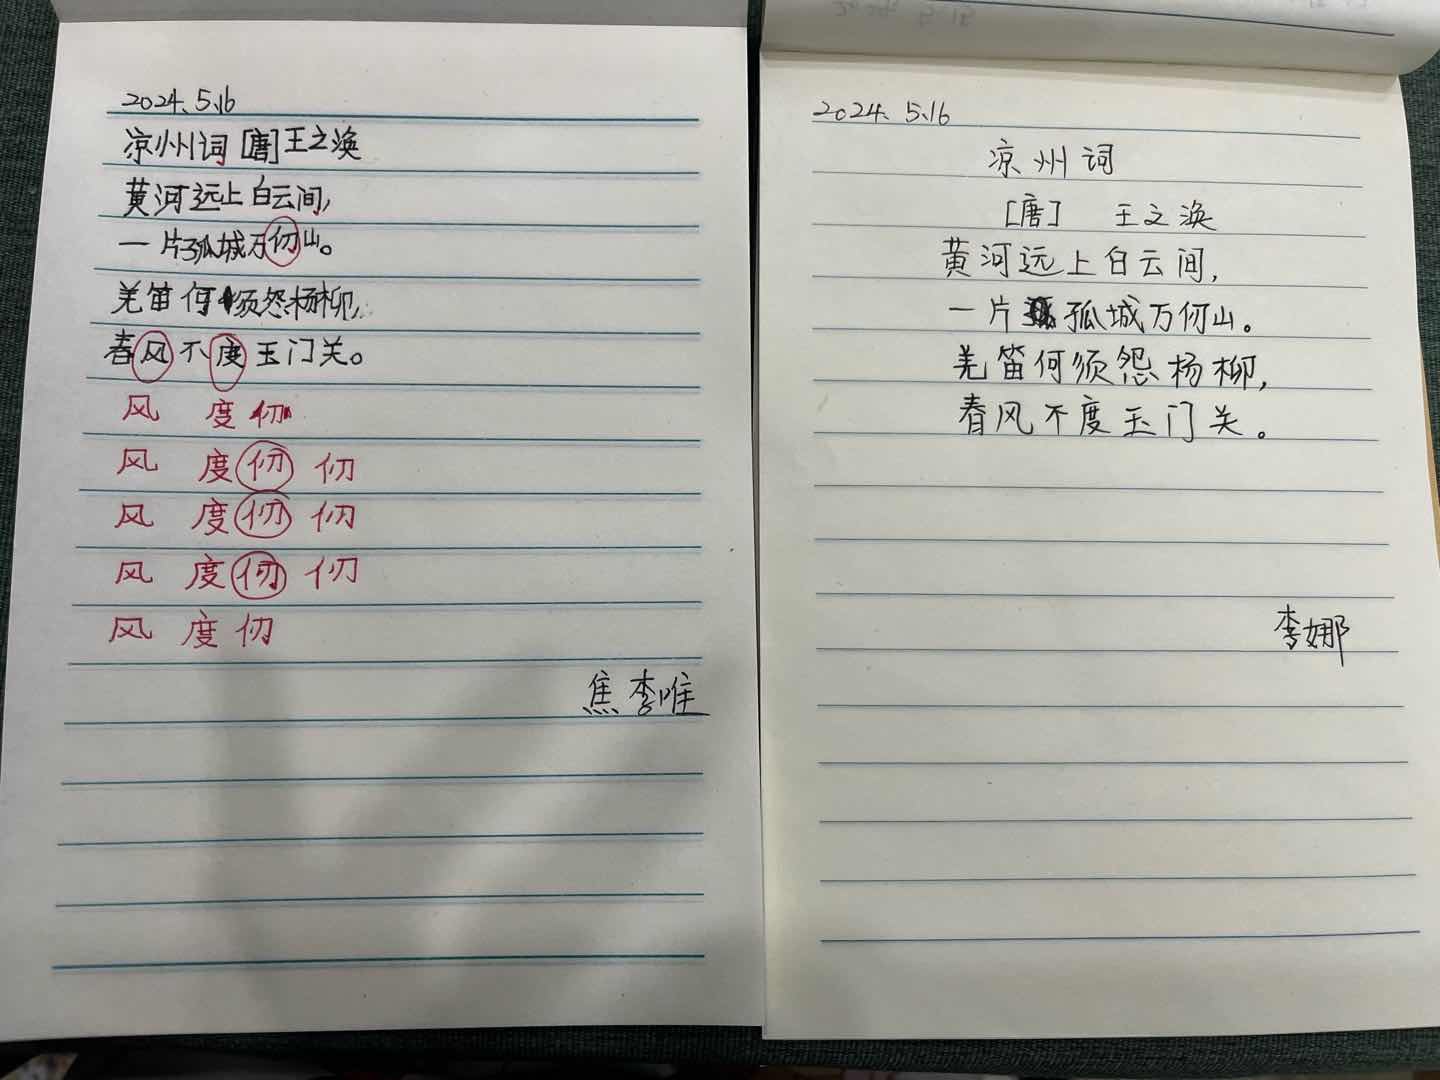 2024.5.16
凉州词[唐]王之涣
黄河远上白云间,
一片孤城万仞山。
羌笛何须怨杨柳,
春风不度玉门关。
风 度 仞
风 度 仞 仞
风 度 仞 仞
风 度 仞 仞
风 度 仞
焦李唯
2024.5.16
凉州词
[唐] 王之涣
黄河远上白云间,
一片孤城万仞山。
羌笛何须怨杨柳,
春风不度玉门关。
李娜